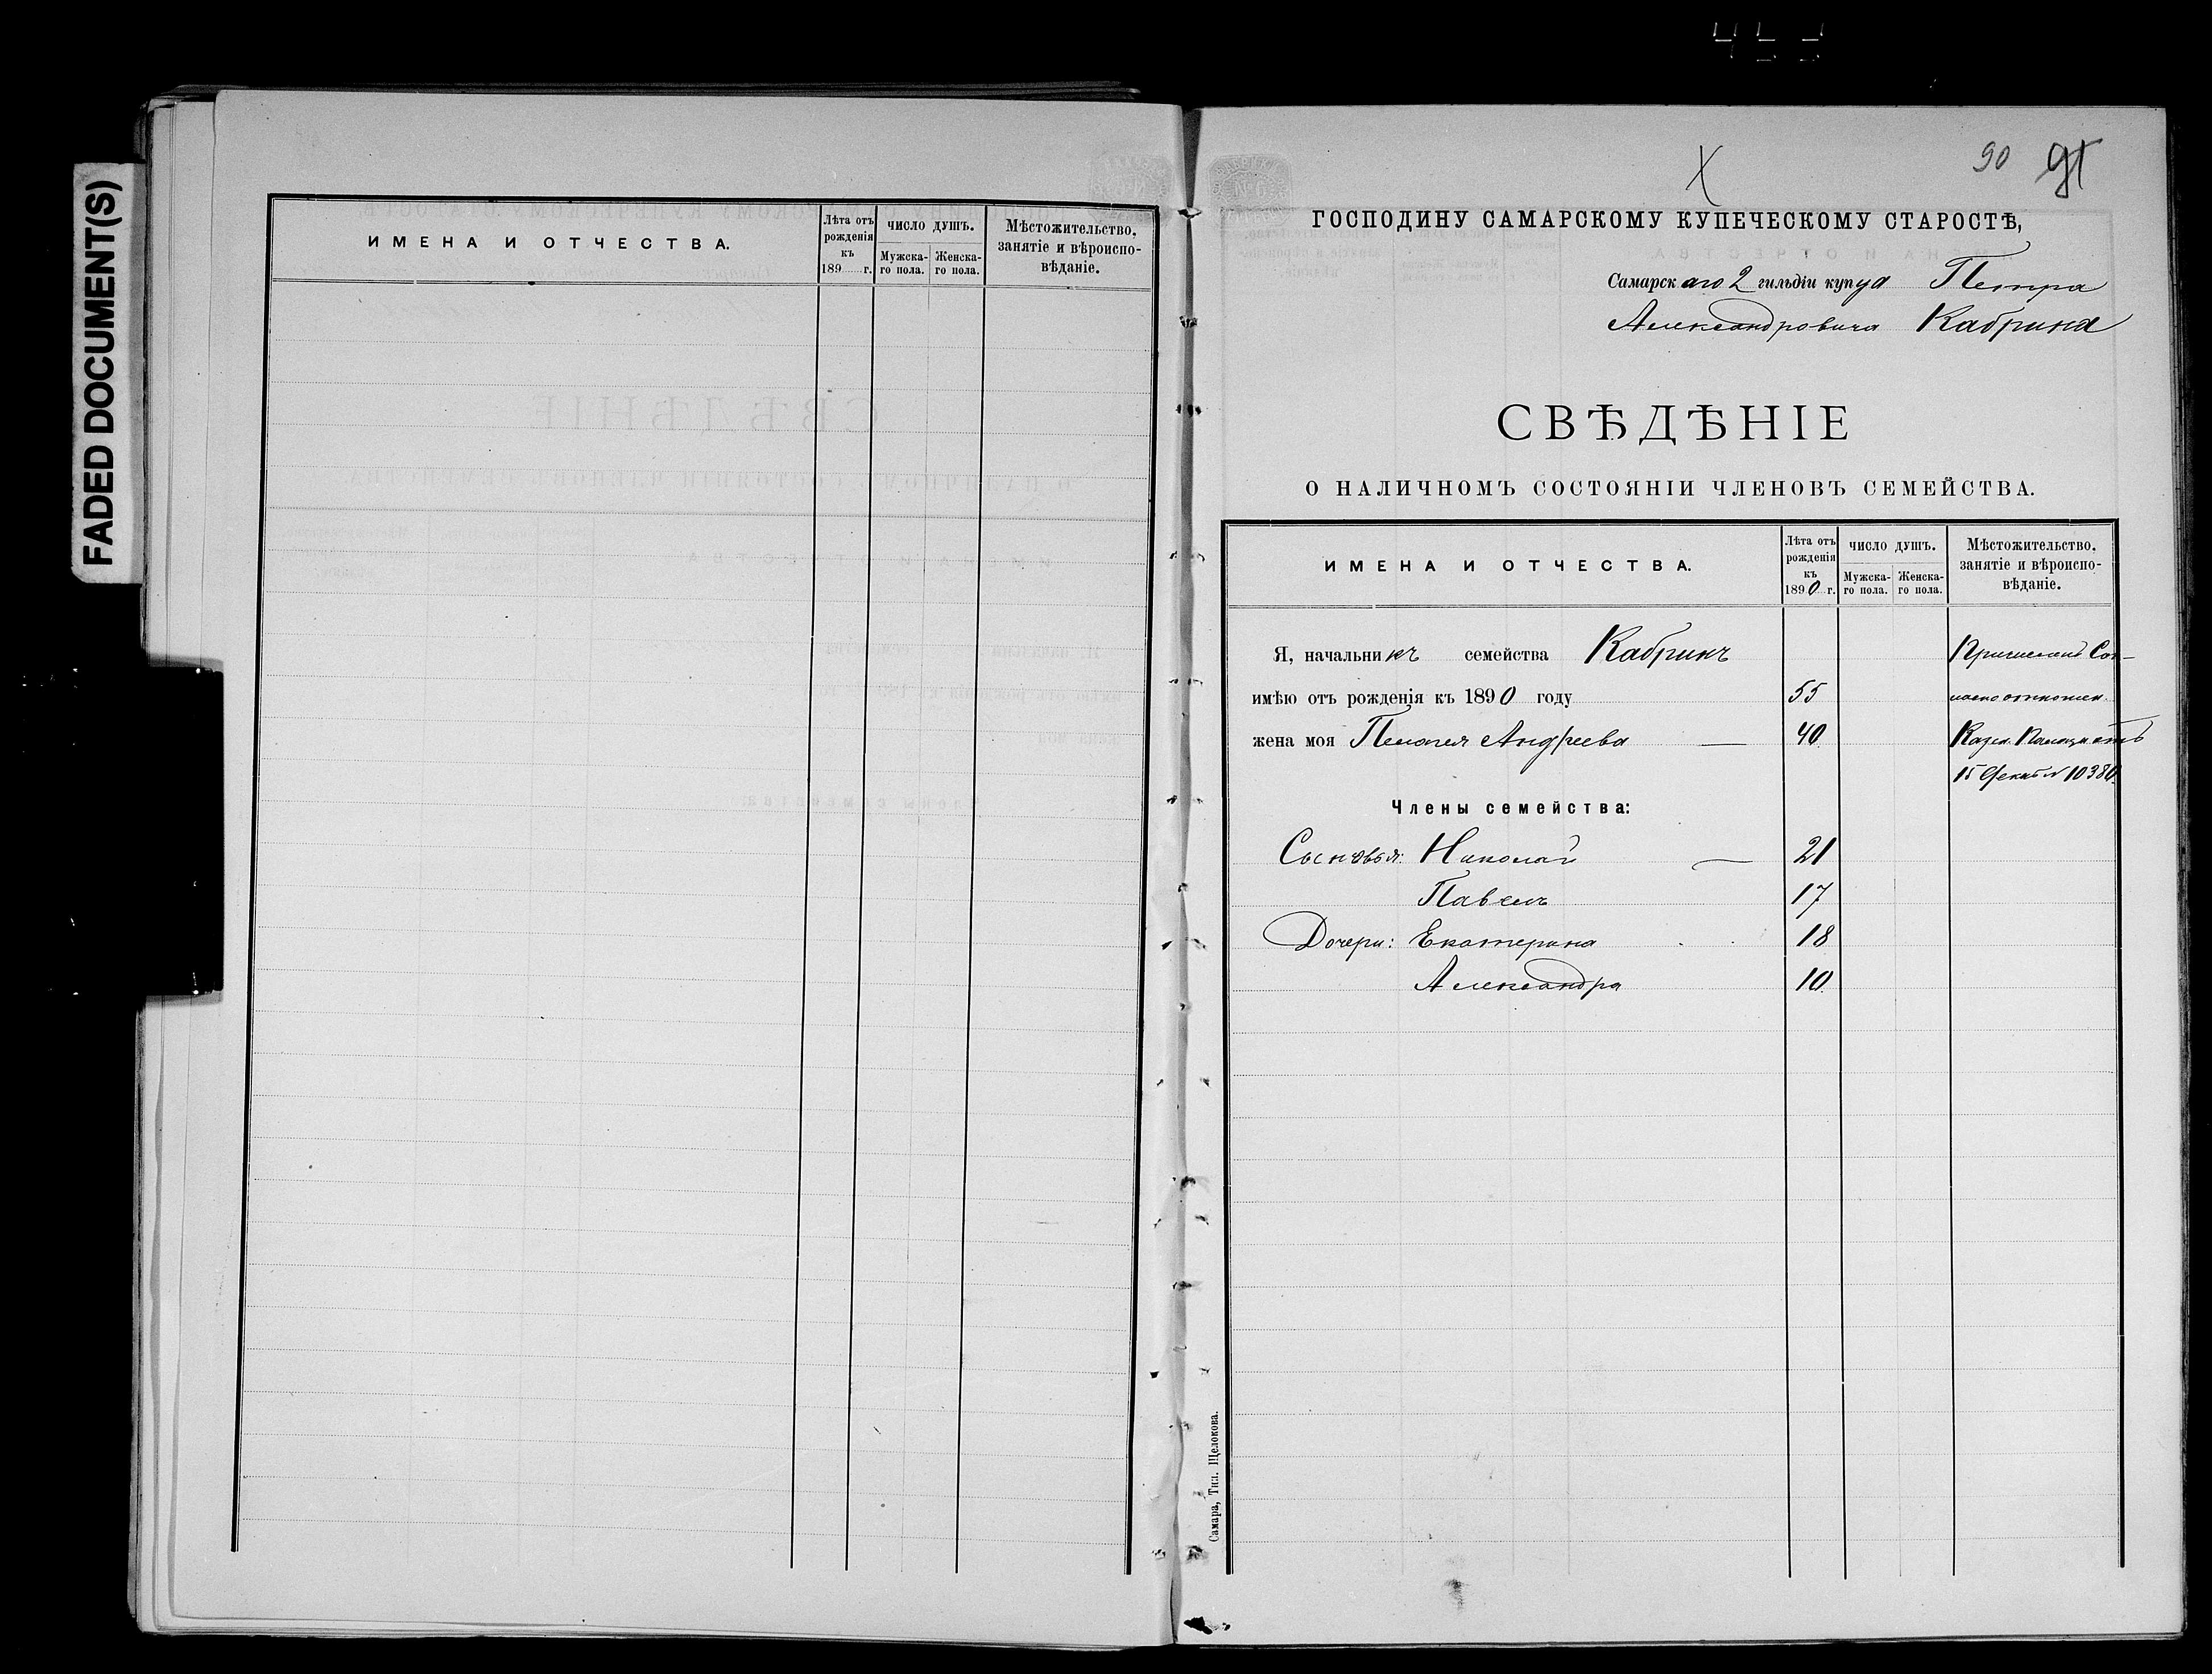 FADED DOCUMENT(S)
ИМЕНА И ОТЧЕСТВА.
Лѣта отъ рожденія къ 189 г.
ЧИСЛО ДУШЪ.
Мужска-го пола.
Женска-го пола.
Мѣстожительство, занятіе и вѣроиспо-вѣданіе.
90 91
ГОСПОДИНУ САМАРСКОМУ КУПЕЧЕСКОМУ СТАРОСТѢ,
Самарскаго 2 гильдіи купца Петра
Александровича Кабрина
СВѢДѢНІЕ
О НАЛИЧНОМЪ СОСТОЯНІИ ЧЛЕНОВЪ СЕМЕЙСТВА.
ИМЕНА И ОТЧЕСТВА.
Лѣта отъ рожденія къ 1890 г.
ЧИСЛО ДУШЪ.
Мужска-го пола.
Женска-го пола.
Мѣстожительство, занятіе и вѣроиспо-вѣданіе.
Я, начальникъ семейства Кабринъ
имѣю отъ рожденія къ 1890 году 55
жена моя Пелагея Андреева — 40
Казен. Палаты отъ
15 Декаб № 10380
Члены семейства:
Сыновья: Николай — 21
Павелъ 17
Дочери: Екатерина 18
Александра 10
Самара, Тип. Щелокова.